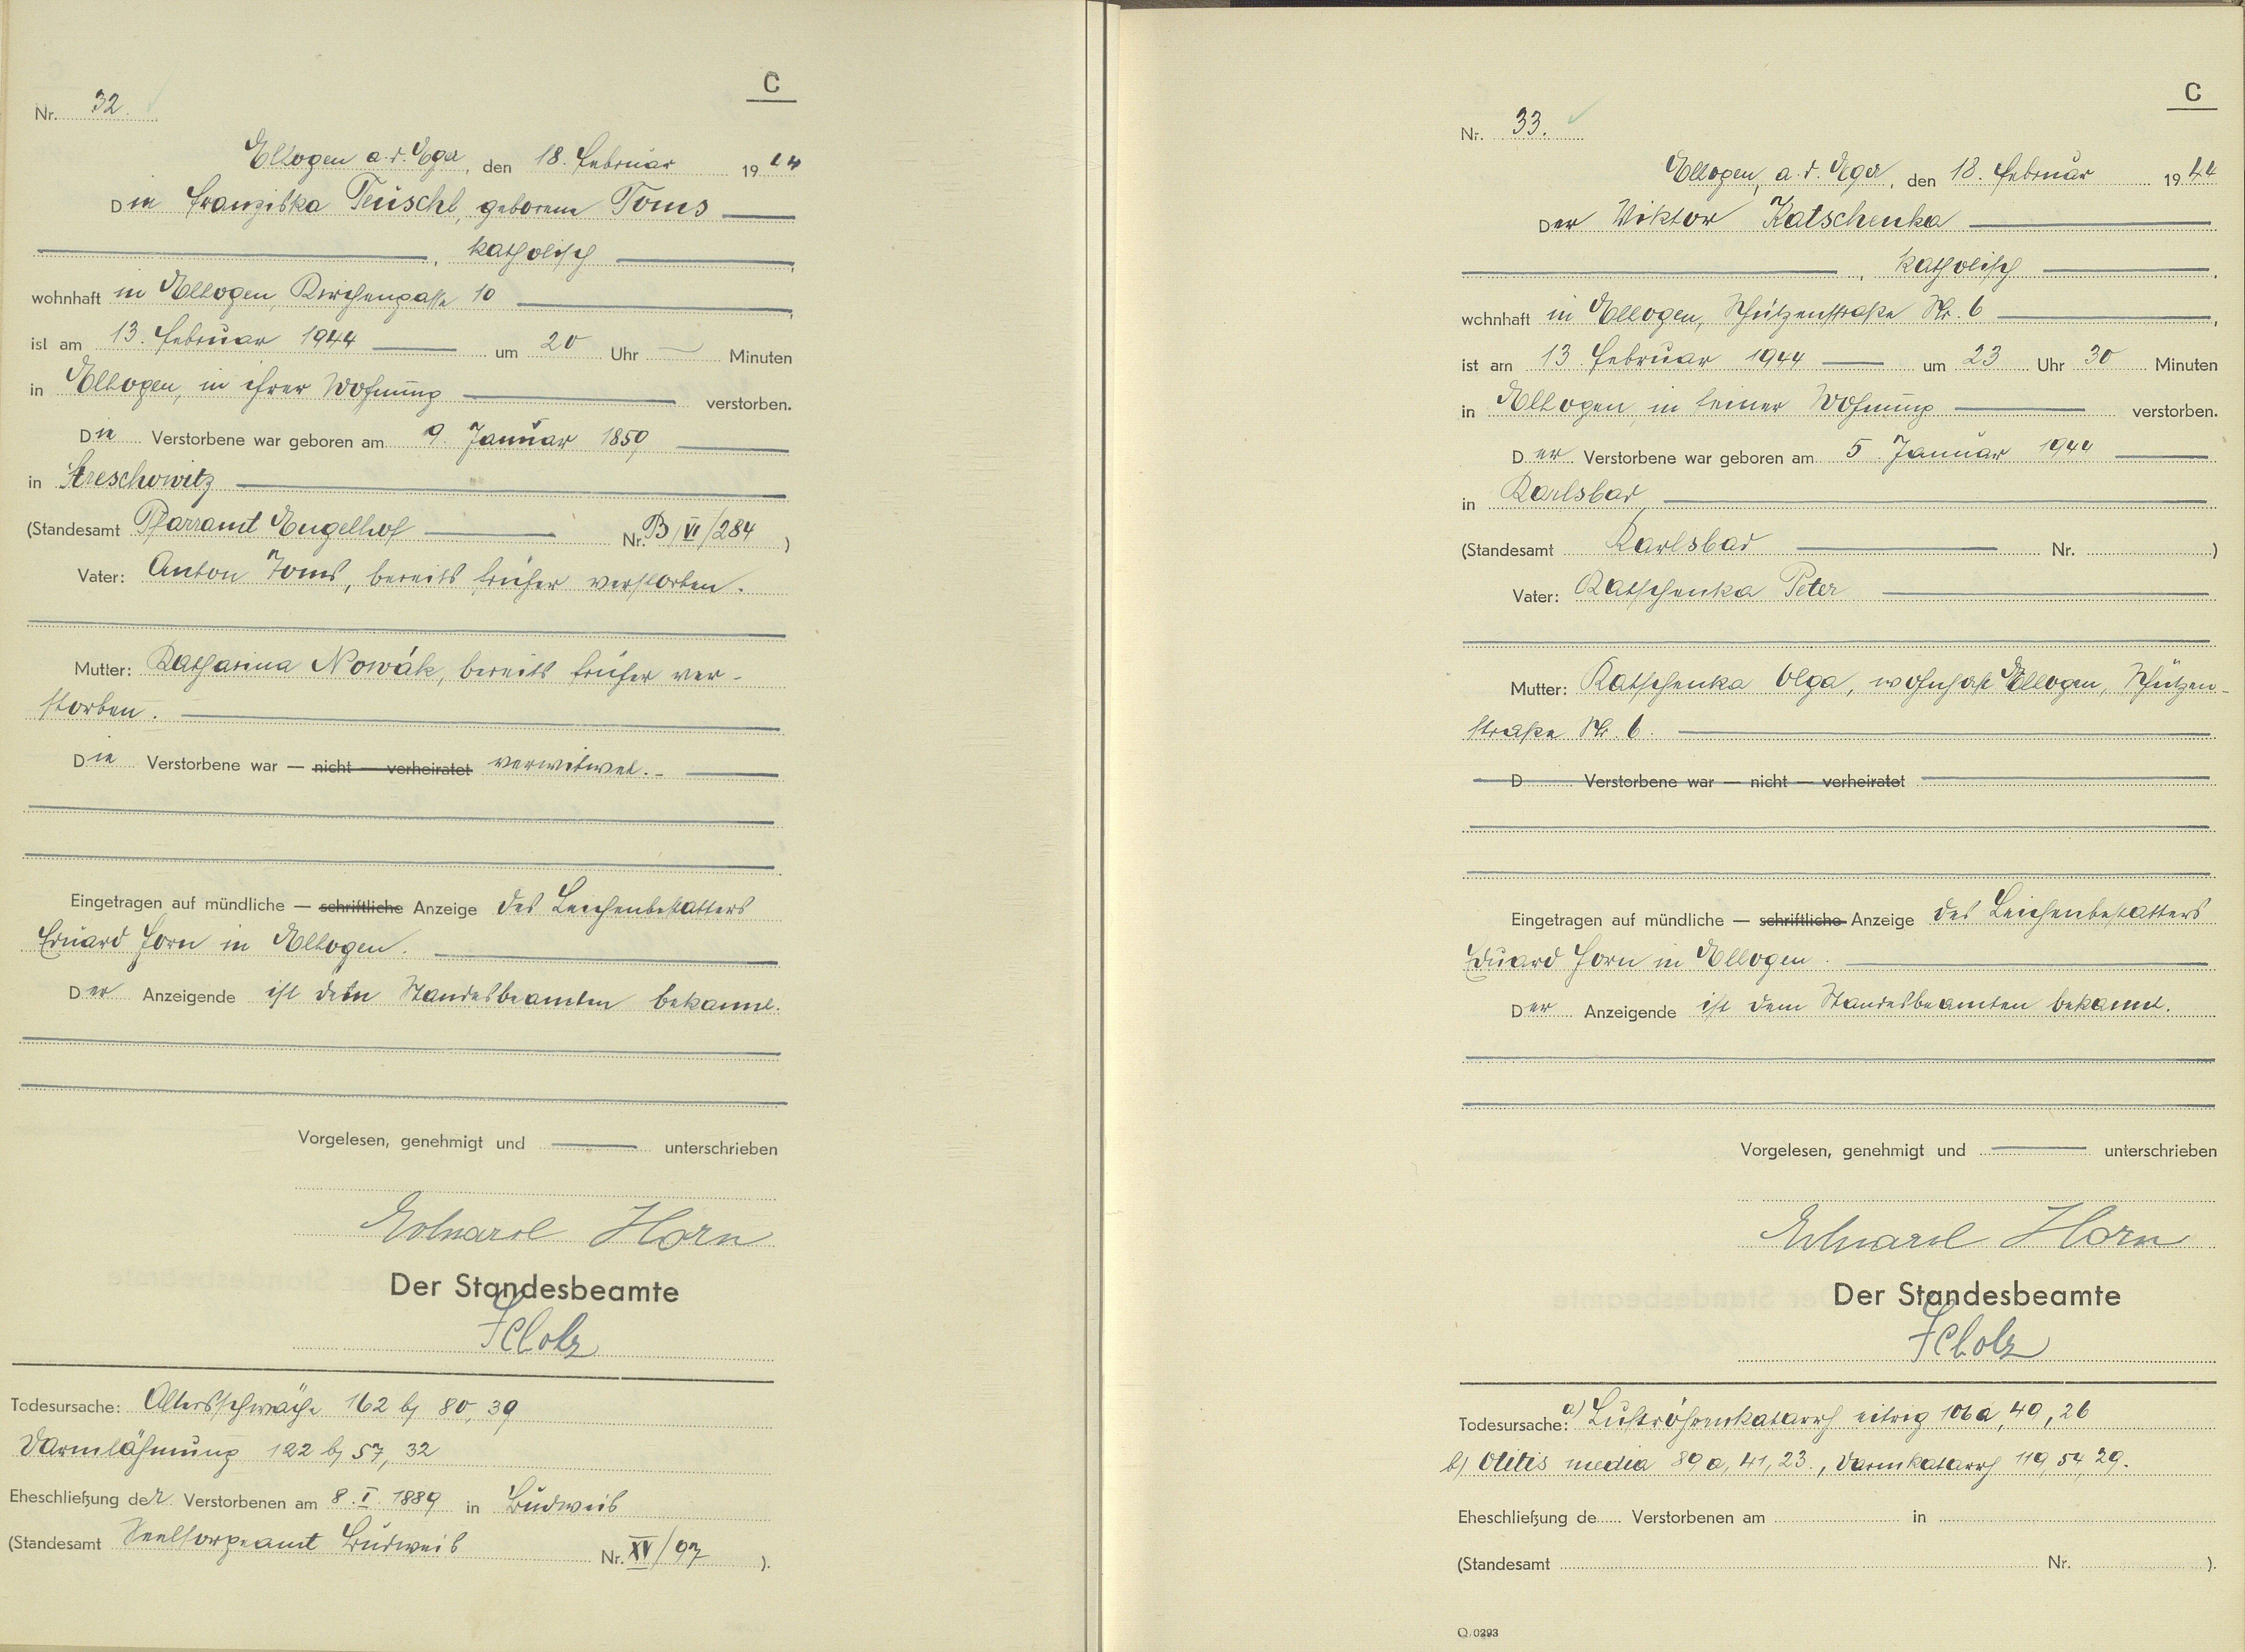 C
Nr. 32.
Ellbogen a. d. Eger, den 18. Februar 1944
Die Franziska Teuschl, geborene Toms
, katholisch
wohnhaft in Ellbogen, Kirchengasse 10
ist am 13. Februar 1944 um 20 Uhr — Minuten
in Ellbogen, in ihrer Wohnung verstorben.
Die Verstorbene war geboren am 9. Januar 1859
in Streschowitz
(Standesamt Pfarramt Engelhof Nr. B/VI/284 )
Vater: Anton Toms, bereits früher verstorben.
Mutter: Katharina Nowák, bereits früher ver-
storben.
Die Verstorbene war — nicht — verheiratet verwitwet.
Eingetragen auf mündliche — schriftliche Anzeige des Leichenbestatters
Eduard Horn in Ellbogen.
Der Anzeigende ist dem Standesbeamten bekannt.
Vorgelesen, genehmigt und unterschrieben
Eduard Horn
Der Standesbeamte
Scholz
Todesursache: Altersschwäche 162 b, 80, 39
Darmlähmung 122 b, 57, 32
Eheschließung der Verstorbenen am 8. I. 1889 in Budweis
(Standesamt Seelsorgeamt Budweis Nr. XV/97 ).
C
Nr. 33.
Ellbogen, a. d. Eger, den 18. Februar 1944
Der Viktor Katschenka
, katholisch
wohnhaft in Ellbogen, Schützenstraße Nr. 6
ist am 13. Februar 1944 um 23 Uhr 30 Minuten
in Ellbogen in seiner Wohnung verstorben.
Der Verstorbene war geboren am 5. Januar 1944
in Karlsbad
(Standesamt Karlsbad Nr. )
Vater: Katschenka Peter
Mutter: Katschenka Olga, wohnhaft Ellbogen, Schützen-
straße Nr. 6.
D Verstorbene war — nicht — verheiratet
Eingetragen auf mündliche — schriftliche Anzeige des Leichenbestatters
Eduard Horn in Ellbogen.
Der Anzeigende ist dem Standesbeamten bekannt.
Vorgelesen, genehmigt und unterschrieben
Eduard Horn
Der Standesbeamte
Scholz
Todesursache: a) Luftröhrenkatarrh eitrig 106 a, 49, 26
b) Otitis media 89 a, 41, 23., Darmkatarrh 119, 54, 29.
Eheschließung de Verstorbenen am in
(Standesamt Nr. ).
Q 0293